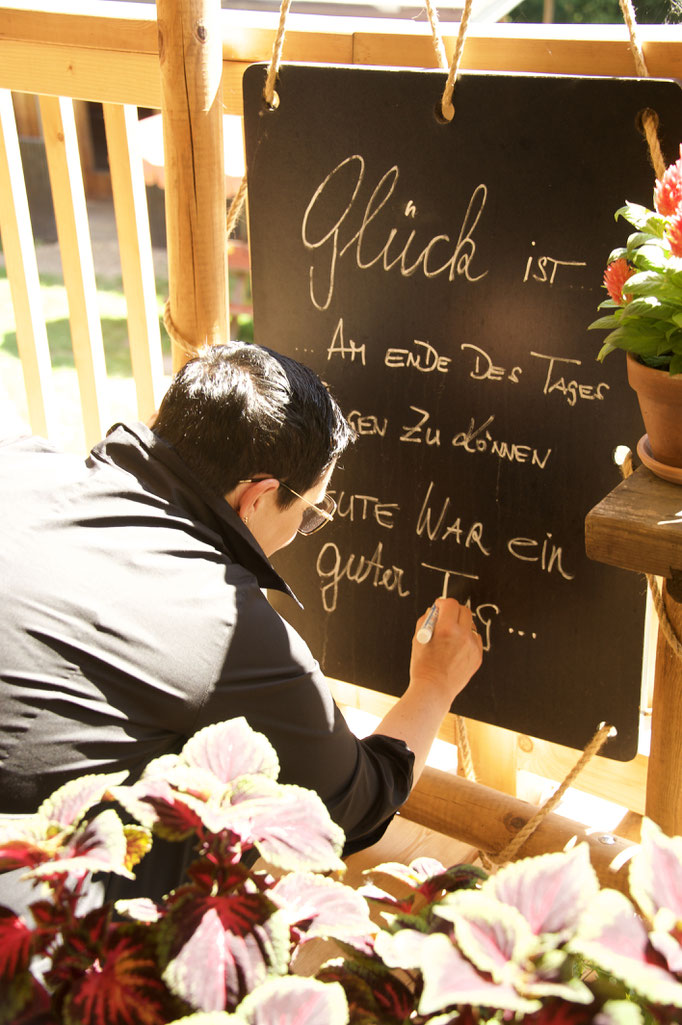 Glück ist...
... Am Ende des Tages
gen zu können
ute war ein
guter Tag...